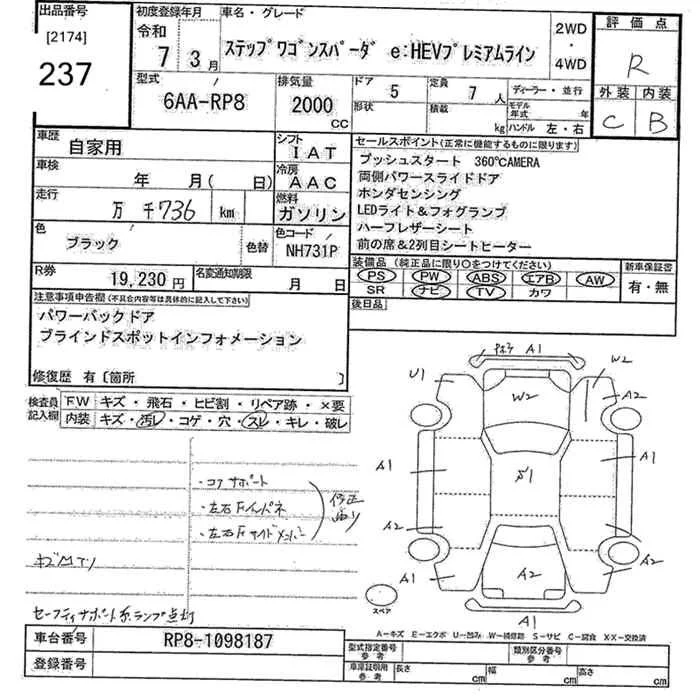 出品番号
[2174]
237
初度登録年月
令和
7 3月
車名・グレード
ステップワゴンスパーダ e:HEVプレミアムライン
2WD
・
4WD
評価点
R
外装 内装
C B
型式
6AA-RP8
排気量
2000
CC
ドア 5
形状
定員 7 人
積載 kg
ディーラー・並行
モデル年式 年
ハンドル 左・右
車歴 自家用
シフト
IAT
車検 年 月( 日)
冷房
AAC
走行 万 千736 km
燃料
ガソリン
色 ブラック 色替
色コード
NH731P
R券 19,230円
名変通知期限 月 日
セールスポイント(正常に機能するものに限ります)
プッシュスタート 360℃AMERA
両側パワースライドドア
ホンダセンシング
LEDライト&フォグランプ
ハーフレザーシート
前の席&2列目シートヒーター
装備品 (純正品に限り○をつけてください)
PS PW ABS エアB AW
SR ナビ TV カワ
新車保証書
有・無
後日品
注意事項申告欄(不具合内容等は具体的に記入して下さい)
パワーバックドア
ブラインドスポットインフォメーション
修復歴 有〔箇所 〕
検査員記入欄
FW キズ・飛石・ヒビ割・リペア跡・×要
内装 キズ・汚レ・コゲ・穴・スレ・キレ・破レ
・コアサポート
・左右Fインパネ
・左右Fサイドメンバー
修正
有り
セーフティサポート系ランプ点灯
A1
U1
W2
W2
A2
A1
A1
A2
A2
A1
A2
A2
A1
スペア
A-キズ E-エクボ U-凹み W-補修跡 S-サビ C-腐食 XX-交換済
車台番号 RP8-1098187
登録番号
型式指定番号
参考
類別区分番号
参考
車庫証明用
参考
長さ cm
幅 cm
高さ cm